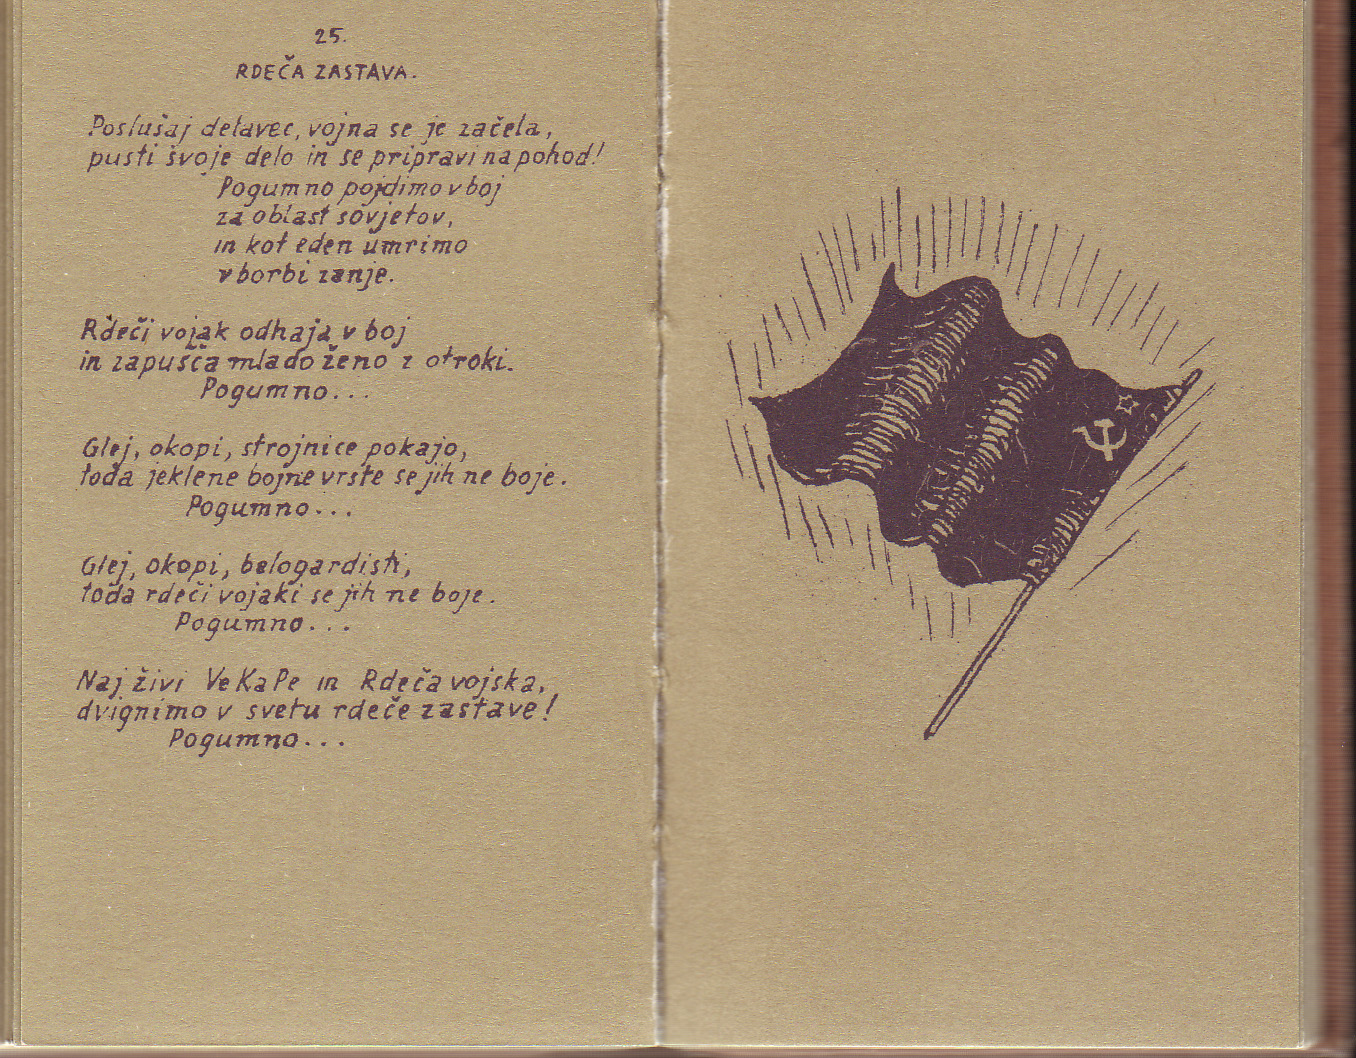 25.
RDEČA ZASTAVA.
Poslušaj delavec, vojna se je začela,
pusti svoje delo in se pripravi na pohod!
Pogumno pojdimo v boj
za oblast sovjetov,
in kot eden umrimo
v borbi zanje.
Rdeči vojak odhaja v boj
in zapušča mlado ženo z otroki.
Pogumno...
Glej, okopi, strojnice pokajo,
toda jeklene bojne vrste se jih ne boje.
Pogumno...
Glej, okopi, belogardisti,
toda rdeči vojaki se jih ne boje.
Pogumno...
Naj živi VeKaPe in Rdeča vojska,
dvignimo v svetu rdeče zastave!
Pogumno...